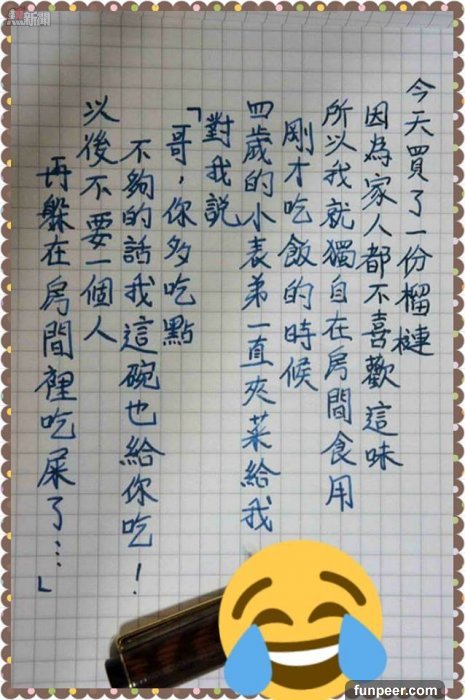 今天買了一份榴槤
因為家人都不喜歡這味
所以我就獨自在房間食用
剛才吃飯的時候
四歲的小表弟一直夾菜給我
對我說
「哥，你多吃點
不夠的話我這碗也給你吃！
以後不要一個人
再躲在房間裡吃屎了…」
新聞
funpeer.com